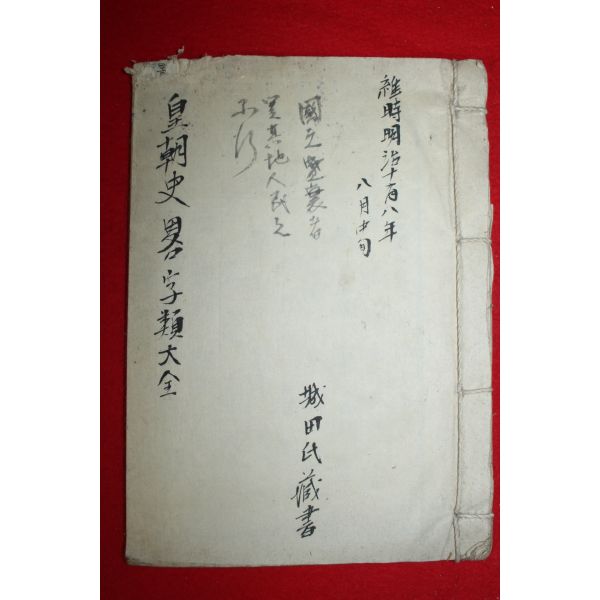 維時明治十有八年
八月中旬
國之衰者
其地人民之
城田氏藏書
皇朝史畧字類大全